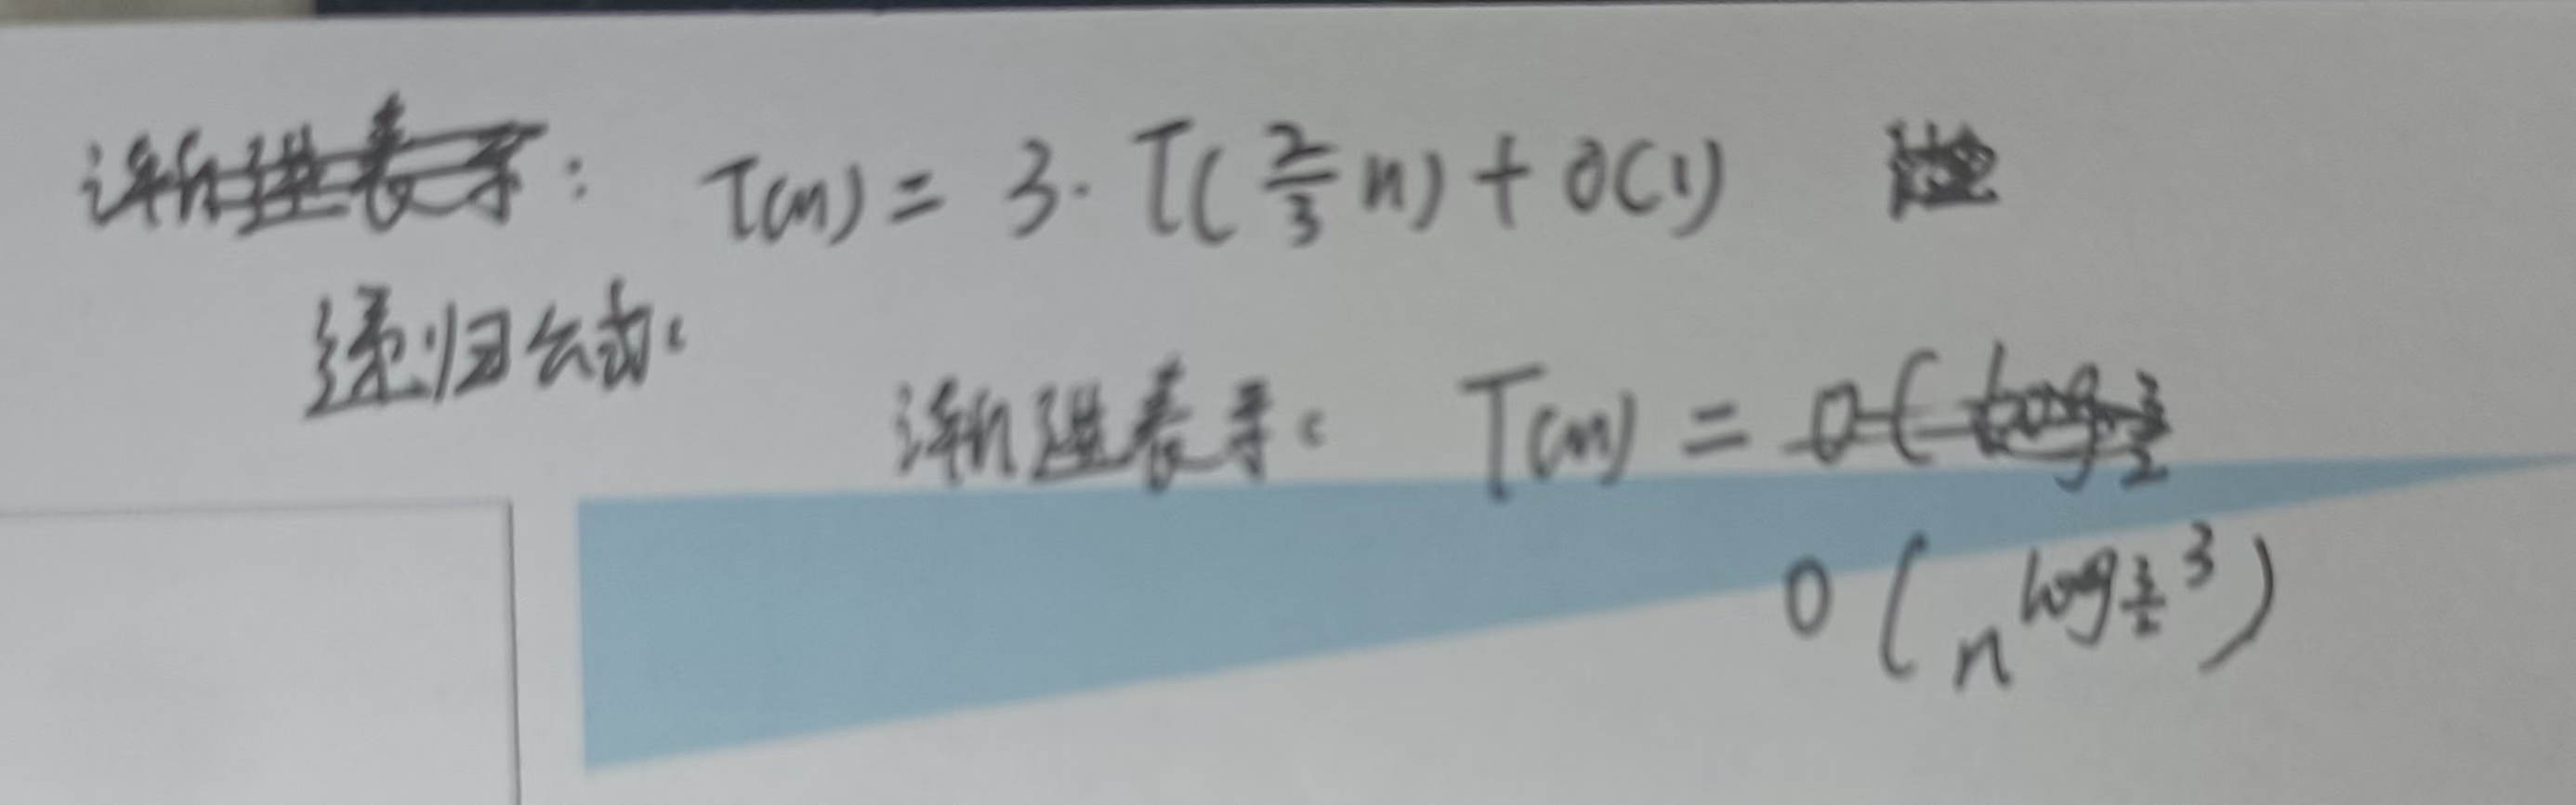 渐进表示: T(n) = 3·T(2/3 n) + O(1)
递归公式:
渐进表示: T(n) = O( log 3/2
O( n^log_{3/2} 3 )